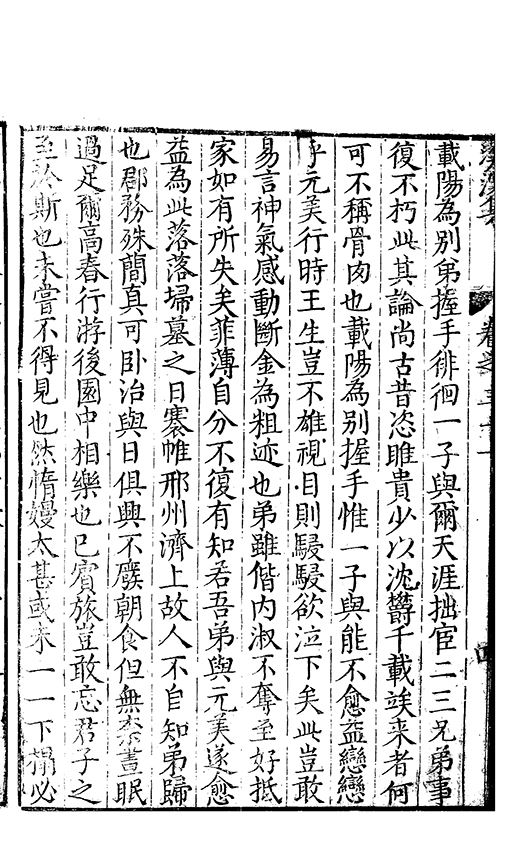 載陽為別弟握手徘徊一子與爾天涯拙宦二三兄弟事
復不朽此其論尚古昔恣睢貴少以沈欝千載竢来者何
可不稱骨肉也載陽為別握手惟一子與能不愈益戀戀
乎元美行時王生豈不雄視目則駸駸欲泣下矣此豈敢
易言神氣感動斷金為粗迹也弟雖偕内淑不奪至好抵
家如有所失矣菲薄自分不復有知君吾弟與元美遂愈
益為此落落埽墓之日褰帷邢州濟上故人不自知弟歸
也郡務殊簡真可卧治與日俱興不廢朝食但無柰晝眠
過足爾高春行游後園中相樂也已賓旅豈敢忘君子之
至於斯也未嘗不得見也然惰嫚太甚或来一一下揖必